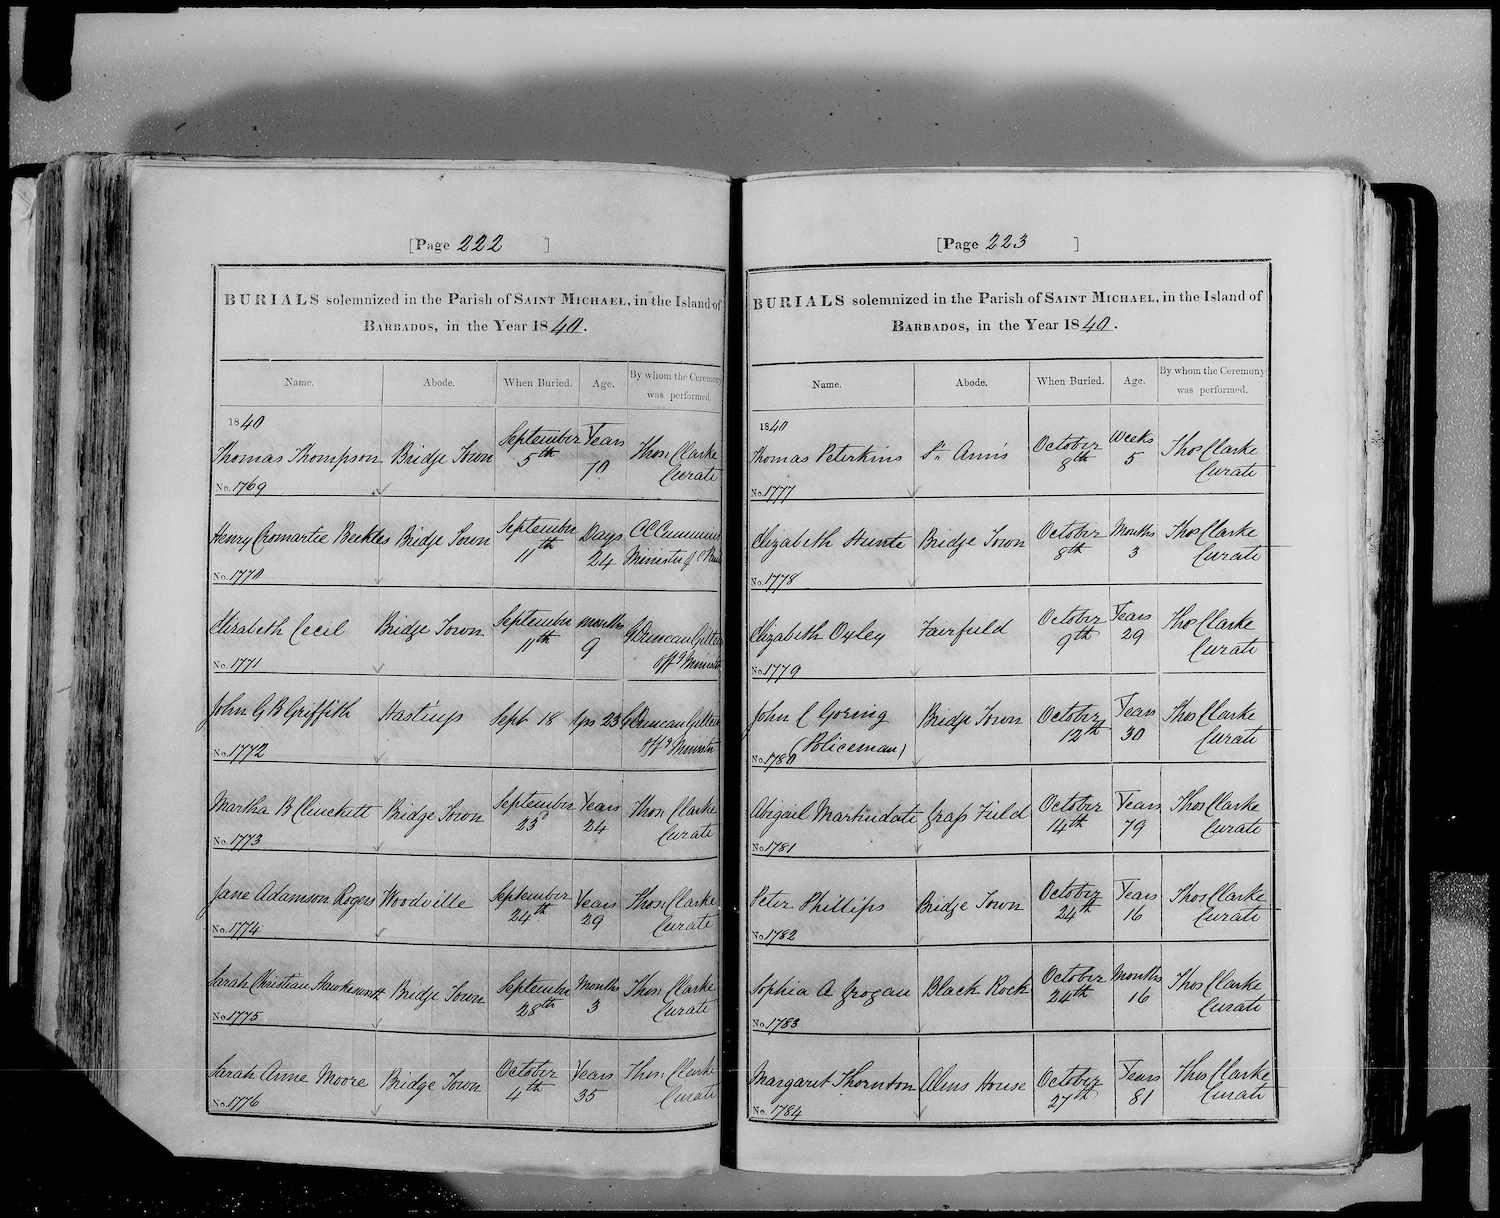 [Page 222 ]
BURIALS solemnized in the Parish of SAINT MICHAEL, in the Island of
BARBADOS, in the Year 1840.
Name. Abode. When Buried. Age. By whom the Ceremony was performed.
1840
Thomas Thompson Bridge Town September 5th Years 70 Thos Clarke Curate
No. 1769
Henry Cromartie Beckles Bridge Town September 11th Days 24 C C Cummins Minister of
No. 1770
Elizabeth Cecil Bridge Town September 11th Months 9 Duncan Offg Minister
No. 1771
John G B Griffith Hastings Sept 18 Yrs 23 Duncan Offg Minister
No. 1772
Martha B Clinckett Bridge Town September 23d Years 24 Thos Clarke Curate
No. 1773
Jane Adamson Rogers Woodville September 24th Years 29 Thos Clarke Curate
No. 1774
Sarah Christian Hawkesworth Bridge Town September 28th Months 3 Thos Clarke Curate
No. 1775
Sarah Anne Moore Bridge Town October 4th Years 35 Thos Clarke Curate
No. 1776
[Page 223 ]
BURIALS solemnized in the Parish of SAINT MICHAEL, in the Island of
BARBADOS, in the Year 1840.
Name. Abode. When Buried. Age. By whom the Ceremony was performed.
1840
Thomas Peterkins St. Ann's October 8th Weeks 5 Thos Clarke Curate
No. 1777
Elizabeth Hunte Bridge Town October 8th Months 3 Thos Clarke Curate
No. 1778
Elizabeth Oxley Fairfield October 9th Years 29 Thos Clarke Curate
No. 1779
John C Goring Bridge Town October 12th Years 30 Thos Clarke Curate
(Policeman)
No. 1780
Abigail Martindale Graps Field October 14th Years 79 Thos Clarke Curate
No. 1781
Peter Phillips Bridge Town October 24th Years 16 Thos Clarke Curate
No. 1782
Sophia A Grogan Black Rock October 24th Months 16 Thos Clarke Curate
No. 1783
Margaret Thornton Alms House October 27th Years 81 Thos Clarke Curate
No. 1784